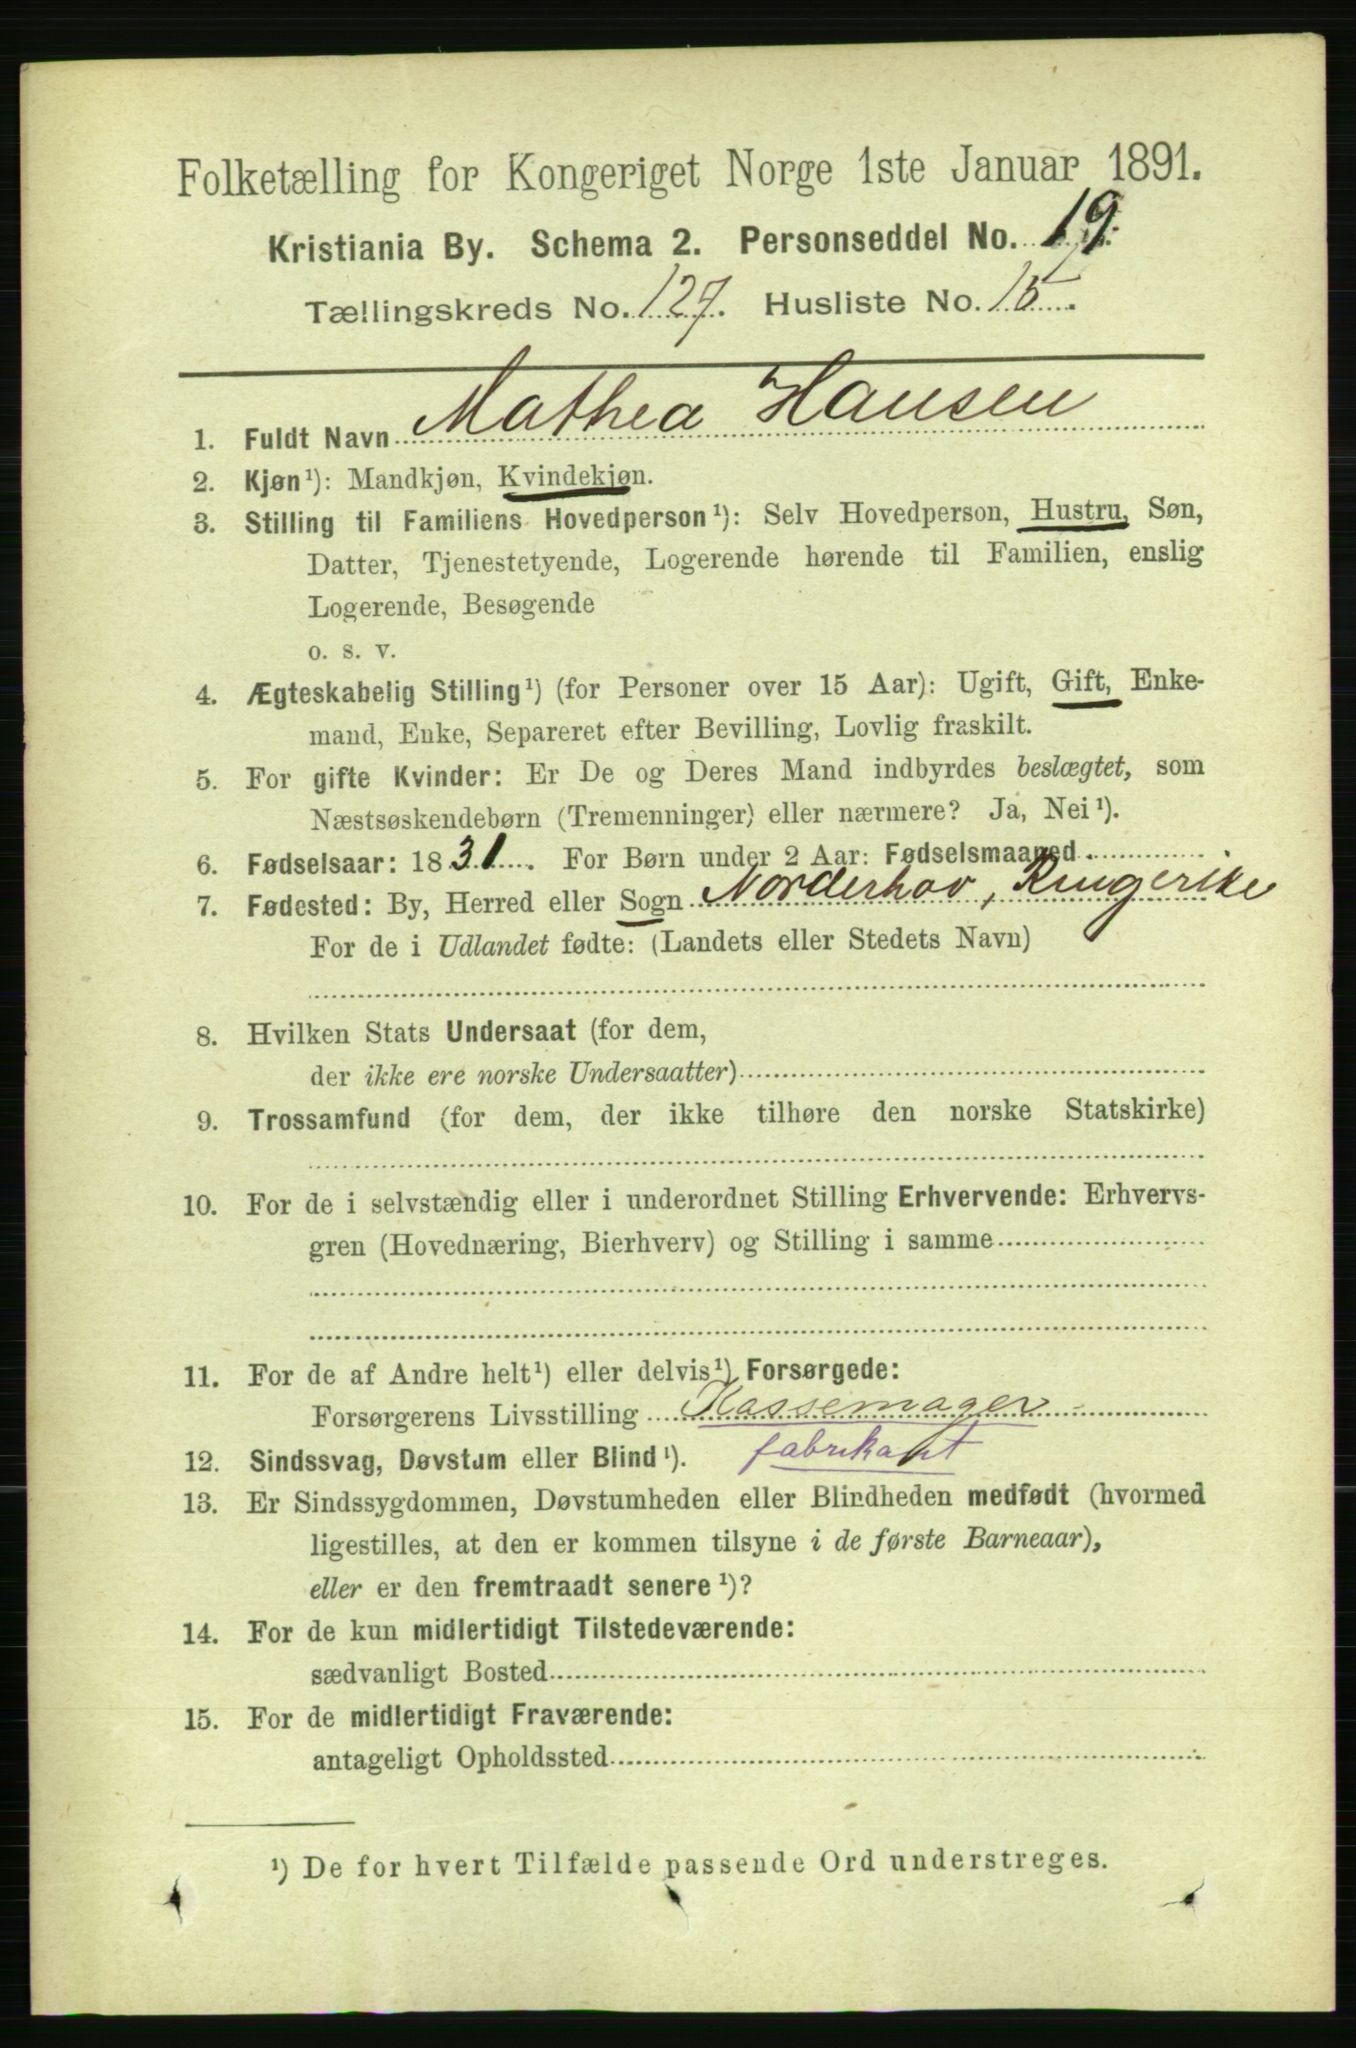 Folketælling for Kongeriget Norge 1ste Januar 1891.
Kristiania By. Schema 2. Personseddel No. 19.
Tællingskreds No. 127. Husliste No. 15.
1. Fuldt Navn Mathea Hansen
2. Kjøn¹): Mandkjøn, Kvindekjøn.
3. Stilling til Familiens Hovedperson¹): Selv Hovedperson, Hustru, Søn,
Datter, Tjenestetyende, Logerende hørende til Familien, enslig
Logerende, Besøgende
o. s. v.
4. Ægteskabelig Stilling¹) (for Personer over 15 Aar): Ugift, Gift, Enke-
mand, Enke, Separeret efter Bevilling, Lovlig fraskilt.
5. For gifte Kvinder: Er De og Deres Mand indbyrdes beslægtet, som
Næstsøskendebørn (Tremenninger) eller nærmere? Ja, Nei¹).
6. Fødselsaar: 1831. For Børn under 2 Aar: Fødselsmaaned
7. Fødested: By, Herred eller Sogn Norderhov, Ringerike
For de i Udlandet fødte: (Landets eller Stedets Navn)
8. Hvilken Stats Undersaat (for dem,
der ikke ere norske Undersaatter)
9. Trossamfund (for dem, der ikke tilhøre den norske Statskirke)
10. For de i selvstændig eller i underordnet Stilling Erhvervende: Erhvervs-
gren (Hovednæring, Bierhverv) og Stilling i samme
11. For de af Andre helt¹) eller delvis¹) Forsørgede:
Forsørgerens Livsstilling Kassemager
fabrikant
12. Sindssvag, Døvstum eller Blind¹).
13. Er Sindssygdommen, Døvstumheden eller Blindheden medfødt (hvormed
ligestilles, at den er kommen tilsyne i de første Barneaar),
eller er den fremtraadt senere¹)?
14. For de kun midlertidigt Tilstedeværende:
sædvanligt Bosted
15. For de midlertidigt Fraværende:
antageligt Opholdssted
¹) De for hvert Tilfælde passende Ord understreges.